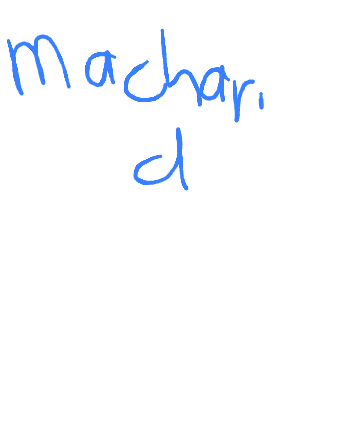 Machari
d